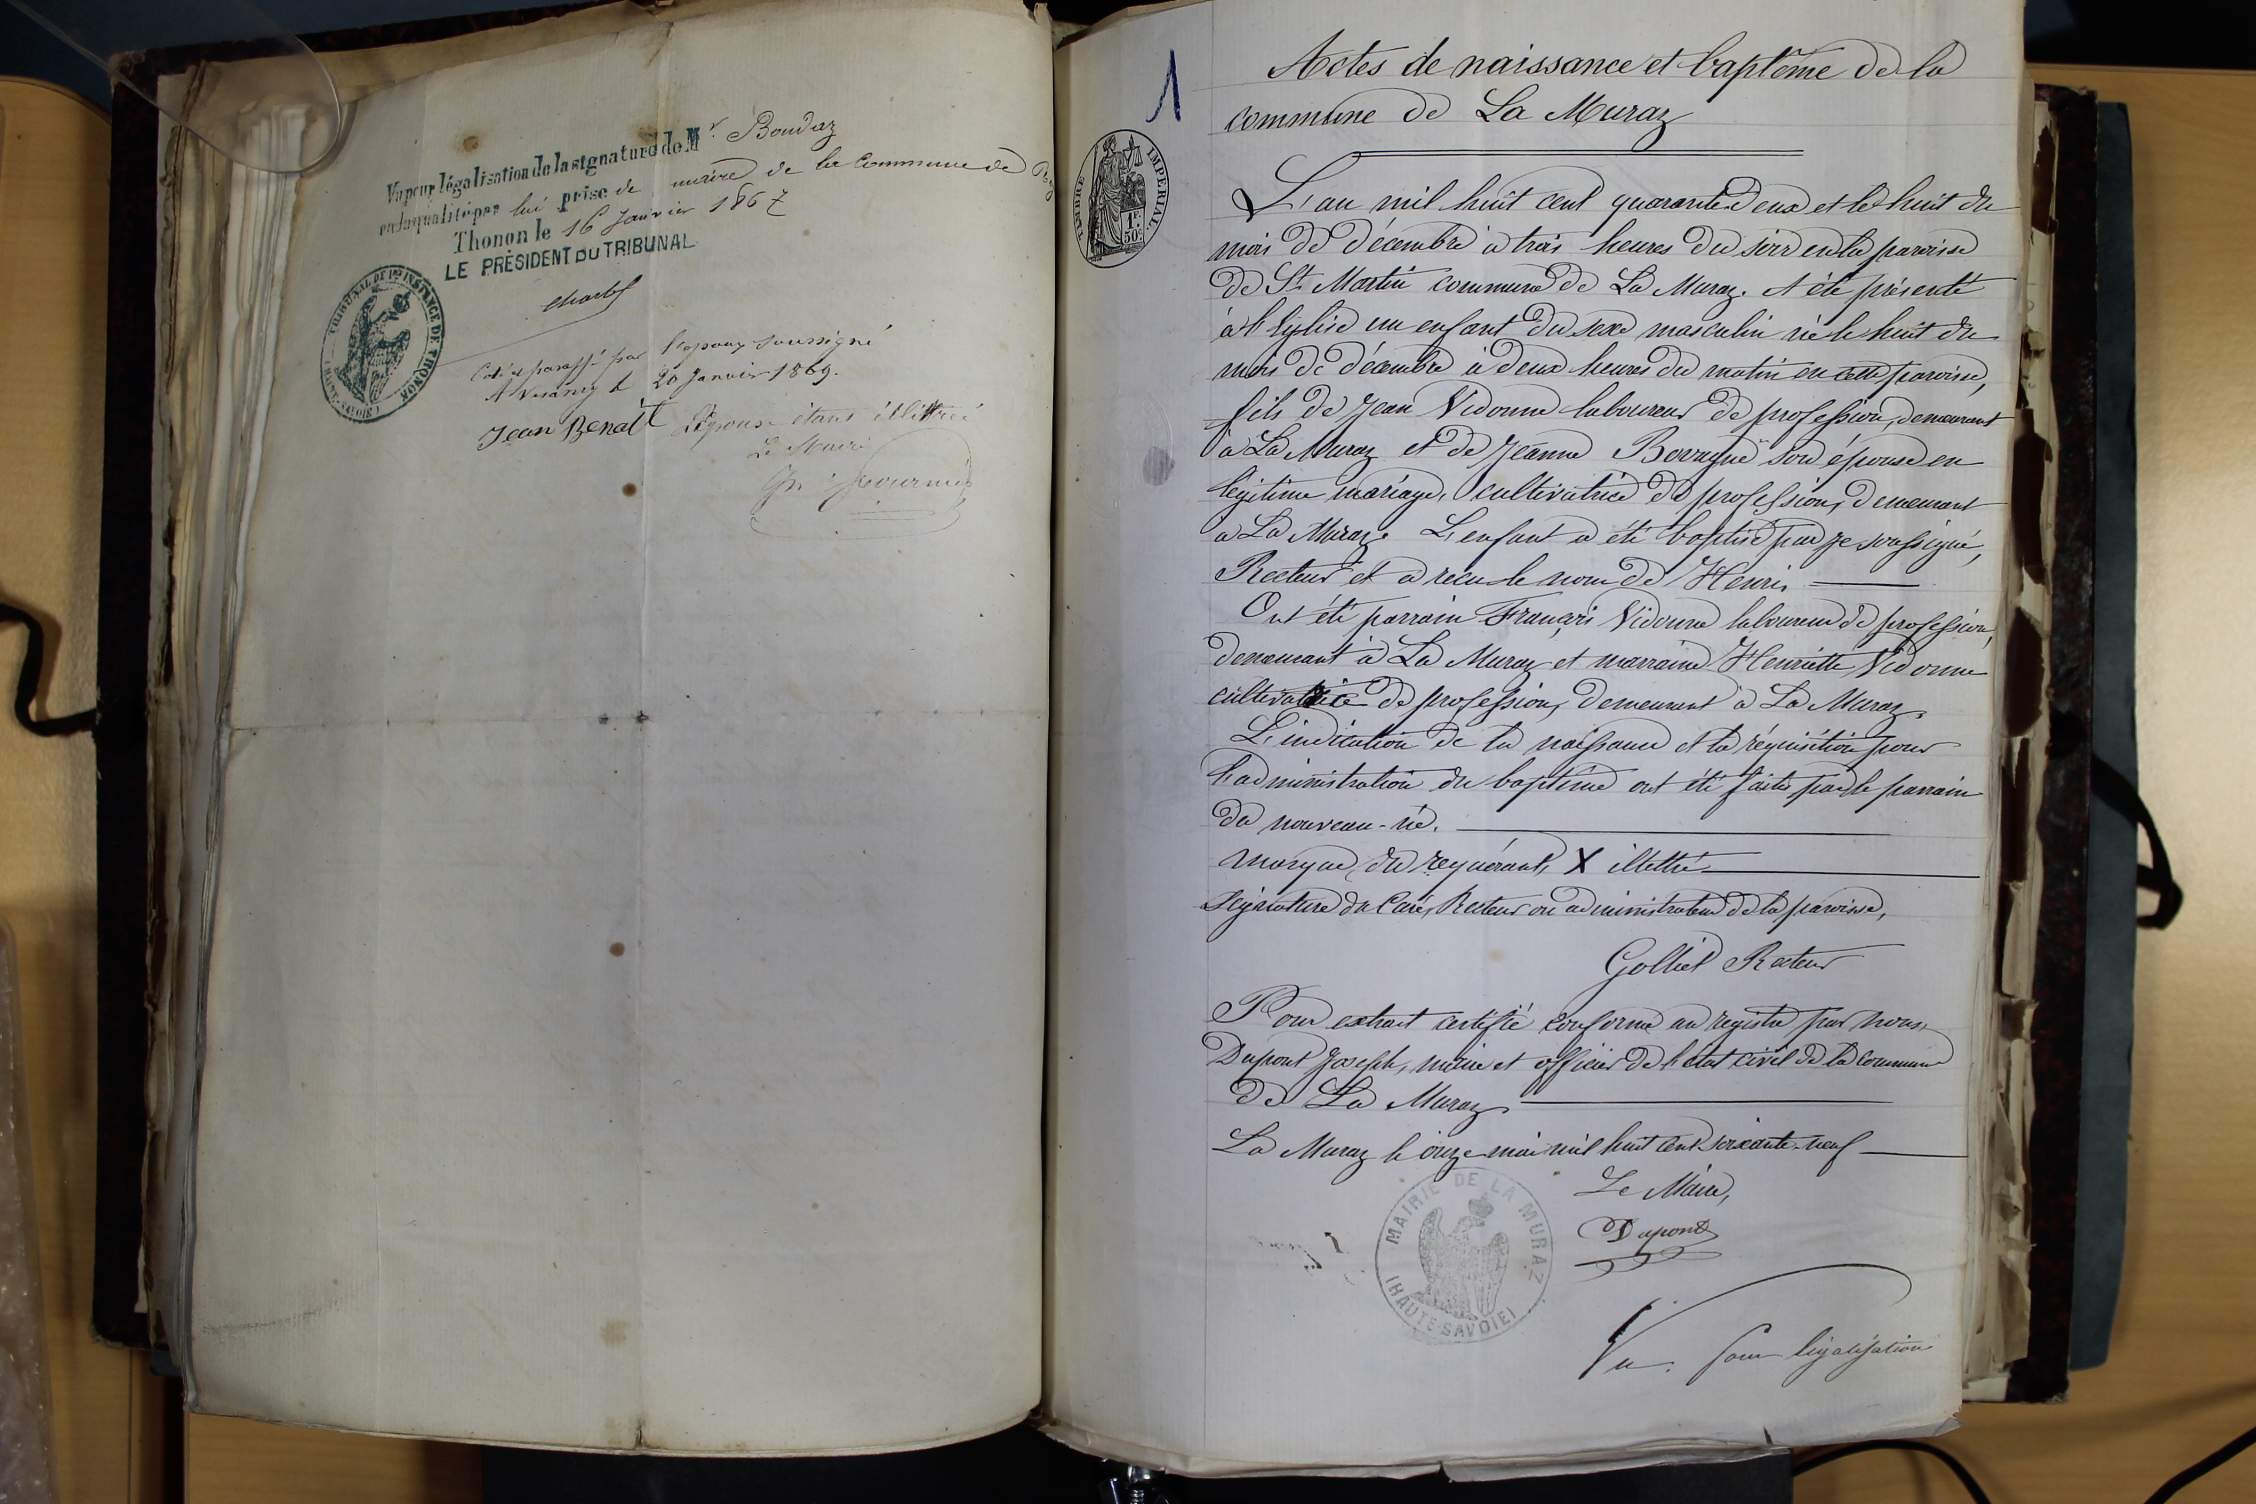 Vu pour légalisation de la signature de Mr. Boudaz
en la qualité par lui prise de maire de la Commune de
Thonon le 16 Janvier 1867
LE PRÉSIDENT DU TRIBUNAL
TRIBUNAL DE 1ère INSTANCE DE THONON
(HAUTE-SAVOIE)
Coté et paraffé par l'époux soussigné
A Vesancy le 20 Janvier 1869.
Jean Benoit L'épouse étant illitrée
Le Maire
1
TIMBRE IMPERIAL
1F.
50C
Actes de naissance et baptême de la
commune de La Muraz
L'an mil huit cent quarante deux et le huit du
mois de décembre à trois heures du soir en la paroisse
de St. Martin commune de La Muraz. A été présenté
à l'Eglise un enfant du sexe masculin né le huit du
mois de décembre à deux heures du matin en cette paroisse,
fils de Jean Vidonne laboureur de profession, demeurant
à La Muraz et de Jeanne Bovagne son épouse en
légitime mariage, cultivatrice de profession, demeurant
à La Muraz. L'enfant a été baptisé par je soussigné,
Recteur et a reçu le nom de Henri.
Ont été parrain François Vidonne laboureur de profession,
demeurant à La Muraz et marraine Henriette Vidonne
cultivatrice de profession, demeurant à La Muraz.
L'indication de la naissance et la réquisition pour
l'administration du baptême ont été faites par le parrain
du nouveau-né.
marque du requérant, X illettré
Signature du Curé, Recteur ou administrateur de la paroisse,
Golliet Recteur
Pour extrait certifié conforme au registre par nous,
Dupont Joseph, maire et officier de l'état civil de la commune
de La Muraz
La Muraz le onze mai mil huit cent soixante-neuf
Le Maire,
Dupont
MAIRIE DE LA MURAZ
(HAUTE-SAVOIE)
Vu pour légalisation